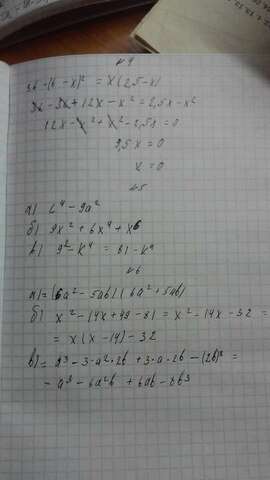 №4
36-(6-x)² = x(2,5-x)
36-36+12x-x² = 2,5x-x²
12x-x²+x²-2,5x=0
9,5x=0
x=0
№5
а) c⁴-9a²
б) 9x²+6x⁴+x6
в) 9²-k⁴ = 81-k⁴
№6
а)=(6a²-5ab)(6a²+5ab)
б) x²-14x+49-81= x²-14x-32=
= x(x-14)-32
в)= a³-3·a²·2b+3·a·2b-(2b)³=
- a³-6a²b+6ab-8b3